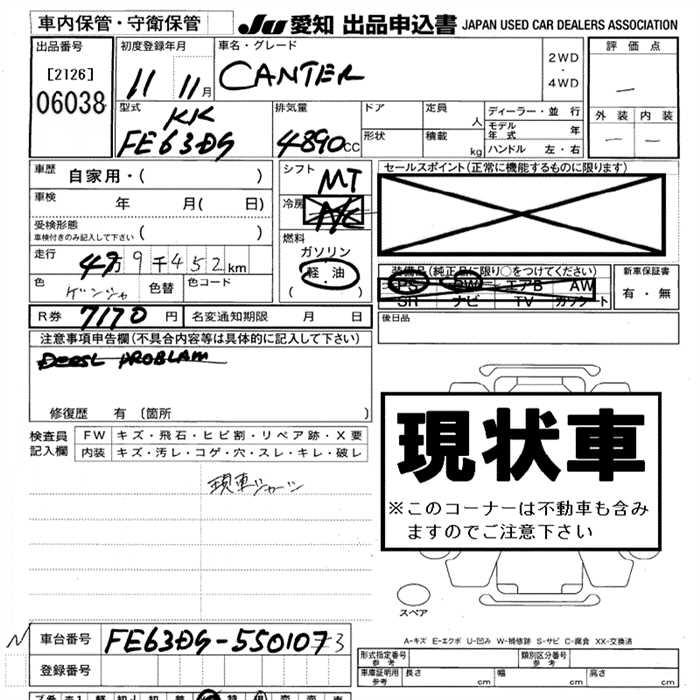 車内保管・守衛保管
JU 愛知 出品申込書 JAPAN USED CAR DEALERS ASSOCIATION
出品番号
[2126]
06038
初度登録年月
11 11月
車名・グレード
CANTER
2WD
・
4WD
評価点
—
外装 内装
— —
型式
KK
FE63DG
排気量
4890CC
ドア
形状
定員 人
積載 kg
ディーラー・並行
モデル年式 年
ハンドル 左・右
車歴 自家用・( )
車検 年 月( 日)
受検形態
(車検付きのみ記入して下さい)
走行
49万9千452km
色 色替 色コード
シフト
MT
冷房
燃料
ガソリン
軽油
( )
セールスポイント(正常に機能するものに限ります)
装備品(純正品に限り○をつけてください)
PS PW エアB AW
SR ナビ TV カワシート
新車保証書
有・無
後日品
R券 7170円 名変通知期限 月 日
注意事項申告欄(不具合内容等は具体的に記入して下さい)
修復歴 有(箇所 )
検査員記入欄
FW キズ・飛石・ヒビ割・リペア跡・X要
内装 キズ・汚レ・コゲ・穴・スレ・キレ・破レ
現車
現状車
※このコーナーは不動車も含み
ますのでご注意下さい
スペア
A-キズ E-エクボ U-凹み W-補修跡 S-サビ C-腐食 XX-交換済
車台番号 FE63DG-550107
登録番号
形式指定番号 参考
類別区分番号 参考
車庫証明用 参考 長さ cm 幅 cm 高さ cm